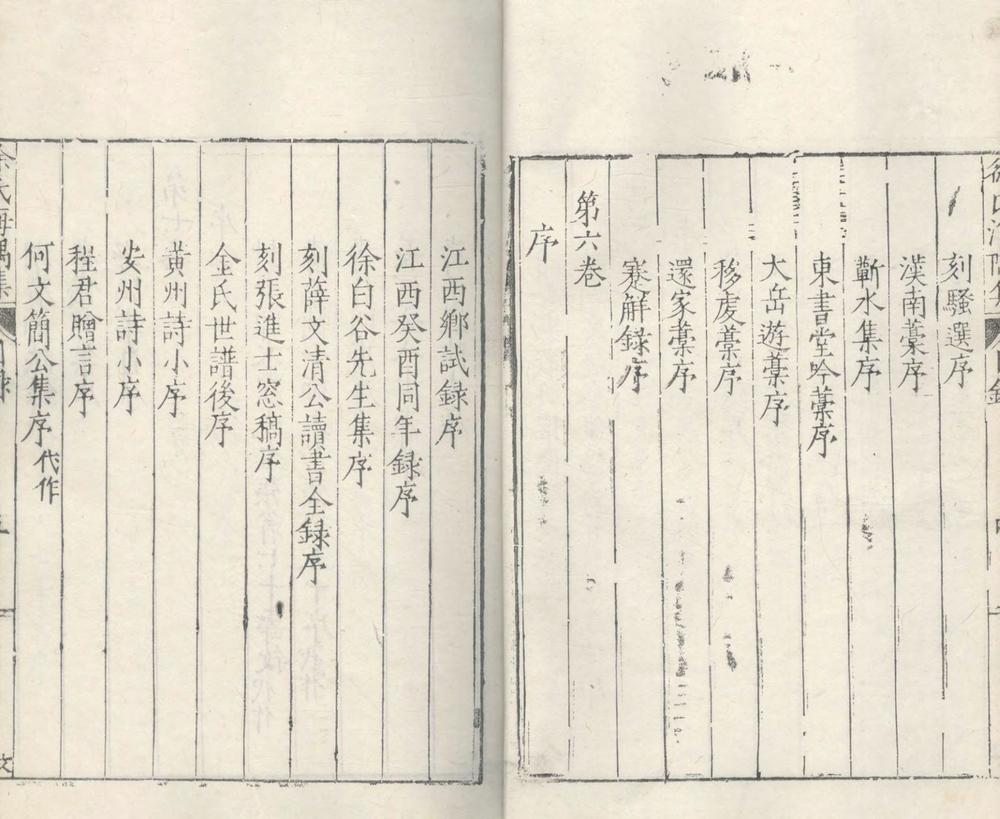 刻騷選序
漢南藁序
蘄水集序
東書堂吟藁序
大岳遊藁序
移虔藁序
還家藁序
蹇解録序
第六卷
序
江西鄉試録序
江西癸酉同年録序
徐白谷先生集序
刻薛文清公讀書全録序
刻張進士窓稿序
金氏世譜後序
黃州詩小序
安州詩小序
程君贈言序
何文簡公集序代作
余氏海隅集